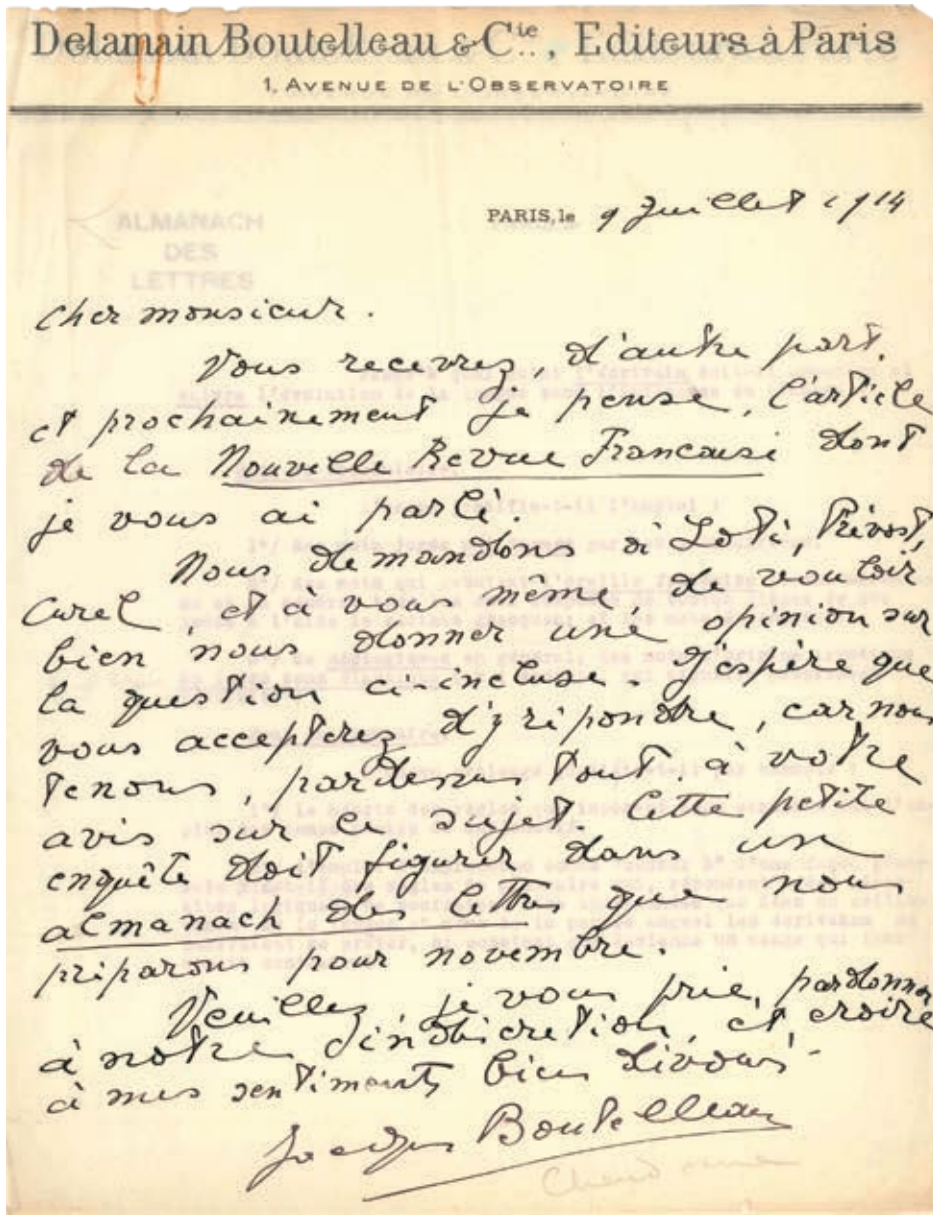 Delamain Boutelleau & Cie., Editeurs à Paris
1, AVENUE DE L'OBSERVATOIRE
PARIS, le 9 Juillet 1914
ALMANACH
DES
LETTRES
Cher monsieur.
Vous recevrez, d'autre part,
et prochainement je pense, l'article
de la Nouvelle Revue Francaise dont
je vous ai parlé.
Nous demandons à Loti, Prévost,
Curel, et à vous même, de vouloir
bien nous donner une opinion sur
la question ci-incluse. J'espère que
vous accepterez d'y répondre, car nous
tenons, pardessus tout, à votre
avis sur ce sujet. Cette petite
enquête doit figurer dans un
almanach des lettres que nous
préparons pour novembre.
Veuillez, je vous prie, pardonner
à notre indiscretion, et croire
à mes sentiments bien dévoués.
Jacques Boutelleau